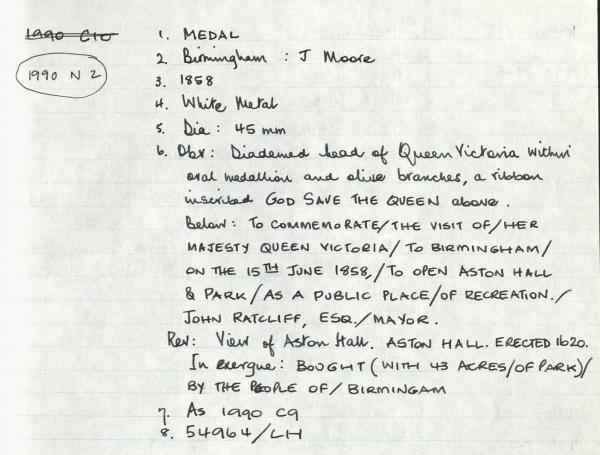 1990 C10
1. MEDAL
1990 N 2
2. Birmingham : J Moore
3. 1858
4. White Metal
5. Dia : 45 mm
6. Obv : Diademed head of Queen Victoria within
oval medallion and olive branches, a ribbon
inscribed GOD SAVE THE QUEEN above.
Below: TO COMMEMORATE/THE VISIT OF/HER
MAJESTY QUEEN VICTORIA/ TO BIRMINGHAM/
ON THE 15TH JUNE 1858,/TO OPEN ASTON HALL
& PARK/AS A PUBLIC PLACE/OF RECREATION./
JOHN RATCLIFF, ESQ./MAYOR.
Rev: View of Aston Hall. ASTON HALL. ERECTED 1620.
In exergue: BOUGHT (WITH 43 ACRES/OF PARK)/
BY THE PEOPLE OF/ BIRMINGAM
7. As 1990 C9
8. 54964/LH